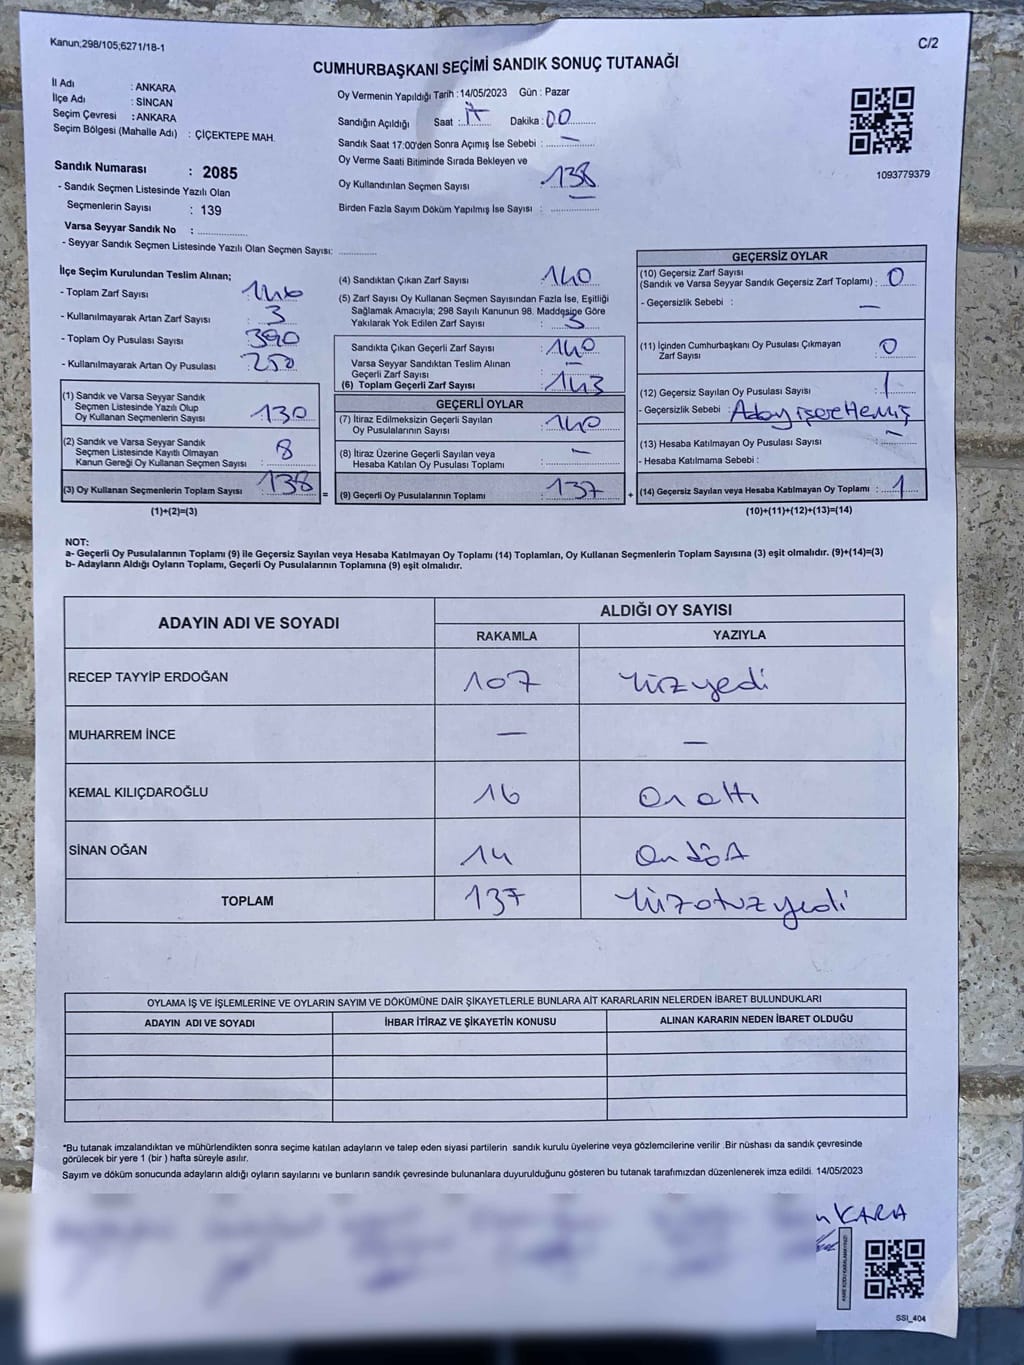 Kanun;298/105;6271/18-1
C/2
CUMHURBAŞKANI SEÇİMİ SANDIK SONUÇ TUTANAĞI
İl Adı : ANKARA
İlçe Adı : SİNCAN
Seçim Çevresi : ANKARA
Seçim Bölgesi (Mahalle Adı) : ÇİÇEKTEPE MAH.
Sandık Numarası : 2085
- Sandık Seçmen Listesinde Yazılı Olan
Seçmenlerin Sayısı : 139
Varsa Seyyar Sandık No :
- Seyyar Sandık Seçmen Listesinde Yazılı Olan Seçmen Sayısı:
Oy Vermenin Yapıldığı Tarih : 14/05/2023 Gün : Pazar
Sandığın Açıldığı Saat : 17 Dakika : 00
Sandık Saat 17:00'den Sonra Açımış İse Sebebi : —
Oy Verme Saati Bitiminde Sırada Bekleyen ve
Oy Kullandırılan Seçmen Sayısı 138
Birden Fazla Sayım Döküm Yapılmış İse Sayısı :
1093779379
İlçe Seçim Kurulundan Teslim Alınan;
- Toplam Zarf Sayısı 146
- Kullanılmayarak Artan Zarf Sayısı : 3
- Toplam Oy Pusulası Sayısı : 390
- Kullanılmayarak Artan Oy Pusulası : 250
(1) Sandık ve Varsa Seyyar Sandık
Seçmen Listesinde Yazılı Olup
Oy Kullanan Seçmenlerin Sayısı : 130
(2) Sandık ve Varsa Seyyar Sandık
Seçmen Listesinde Kayıtlı Olmayan
Kanun Gereği Oy Kullanan Seçmen Sayısı : 8
(3) Oy Kullanan Seçmenlerin Toplam Sayısı : 138 =
(1)+(2)=(3)
(4) Sandıktan Çıkan Zarf Sayısı : 140
(5) Zarf Sayısı Oy Kullanan Seçmen Sayısından Fazla İse, Eşitliği
Sağlamak Amacıyla; 298 Sayılı Kanunun 98. Maddesine Göre
Yakılarak Yok Edilen Zarf Sayısı : 3
Sandıkta Çıkan Geçerli Zarf Sayısı : 140
Varsa Seyyar Sandıktan Teslim Alınan
Geçerli Zarf Sayısı :
(6) Toplam Geçerli Zarf Sayısı : 143
GEÇERLİ OYLAR
(7) İtiraz Edilmeksizin Geçerli Sayılan
Oy Pusulalarının Sayısı : 140
(8) İtiraz Üzerine Geçerli Sayılan veya
Hesaba Katılan Oy Pusulası Toplamı : —
(9) Geçerli Oy Pusulalarının Toplamı : 137 +
GEÇERSİZ OYLAR
(10) Geçersiz Zarf Sayısı
(Sandık ve Varsa Seyyar Sandık Geçersiz Zarf Toplamı) : 0
- Geçersizlik Sebebi : —
(11) İçinden Cumhurbaşkanı Oy Pusulası Çıkmayan
Zarf Sayısı : 0
(12) Geçersiz Sayılan Oy Pusulası Sayısı : 1
- Geçersizlik Sebebi :
(13) Hesaba Katılmayan Oy Pusulası Sayısı : —
- Hesaba Katılmama Sebebi :
(14) Geçersiz Sayılan veya Hesaba Katılmayan Oy Toplamı : 1
(10)+(11)+(12)+(13)=(14)
NOT:
a- Geçerli Oy Pusulalarının Toplamı (9) ile Geçersiz Sayılan veya Hesaba Katılmayan Oy Toplamı (14) Toplamları, Oy Kullanan Seçmenlerin Toplam Sayısına (3) eşit olmalıdır. (9)+(14)=(3)
b- Adayların Aldığı Oyların Toplamı, Geçerli Oy Pusulalarının Toplamına (9) eşit olmalıdır.
ADAYIN ADI VE SOYADI
ALDIĞI OY SAYISI
RAKAMLA YAZIYLA
RECEP TAYYİP ERDOĞAN 107 Yüzyedi
MUHARREM İNCE — —
KEMAL KILIÇDAROĞLU 16 On altı
SİNAN OĞAN 14 On dört
TOPLAM 137 Yüzotuzyedi
OYLAMA İŞ VE İŞLEMLERİNE VE OYLARIN SAYIM VE DÖKÜMÜNE DAİR ŞİKAYETLERLE BUNLARA AİT KARARLARIN NELERDEN İBARET BULUNDUKLARI
ADAYIN ADI VE SOYADI İHBAR İTİRAZ VE ŞİKAYETİN KONUSU ALINAN KARARIN NEDEN İBARET OLDUĞU
*Bu tutanak imzalandıktan ve mühürlendikten sonra seçime katılan adayların ve talep eden siyasi partilerin sandık kurulu üyelerine veya gözlemcilerine verilir .Bir nüshası da sandık çevresinde
görülecek bir yere 1 (bir ) hafta süreyle asılır.
Sayım ve döküm sonucunda adayların aldığı oyların sayılarını ve bunların sandık çevresinde bulunanlara duyurulduğunu gösteren bu tutanak tarafımızdan düzenlenerek imza edildi. 14/05/2023
KARA
SSI_404